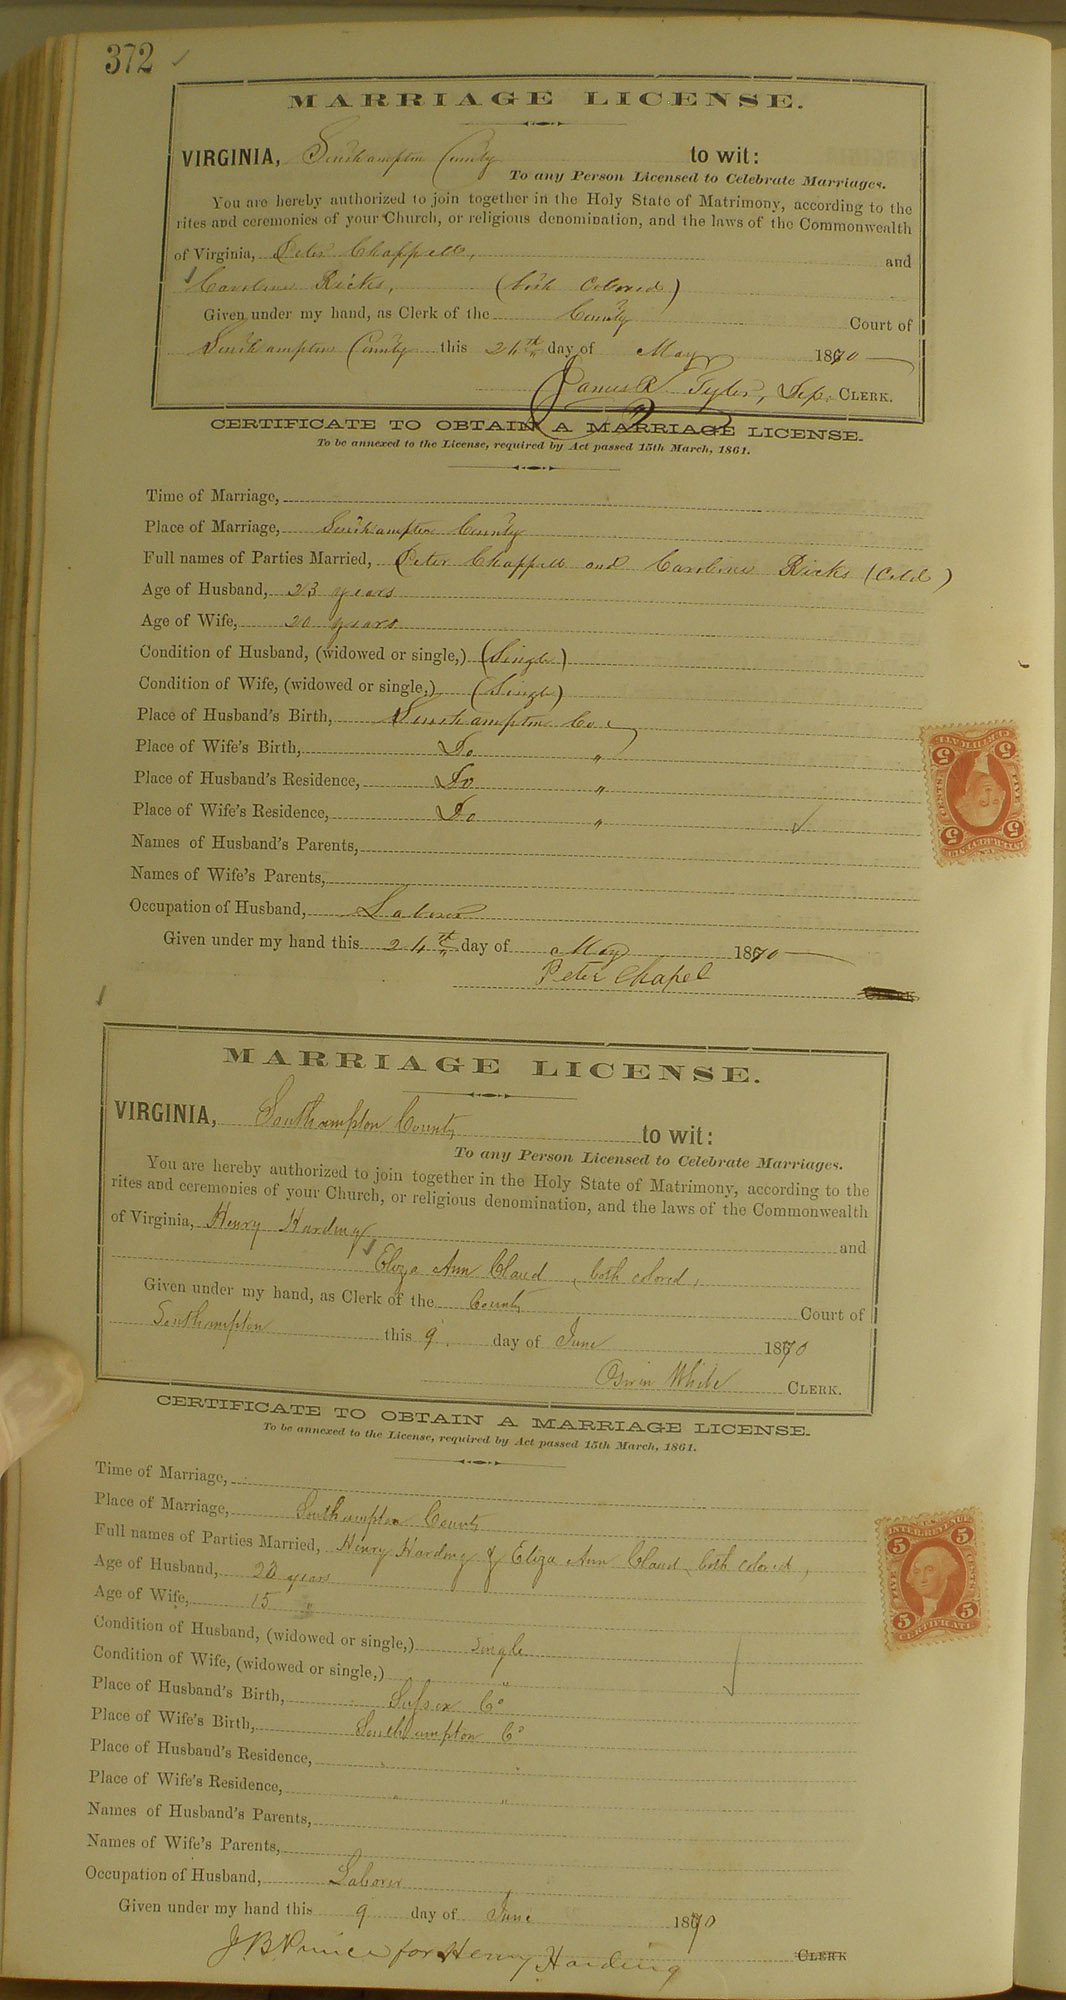 372
MARRIAGE LICENSE.
VIRGINIA, Southampton County to wit:
To any Person Licensed to Celebrate Marriages.
You are hereby authorized to join together in the Holy State of Matrimony, according to the
rites and ceremonies of your Church, or religious denomination, and the laws of the Commonwealth
of Virginia, Peter Chappell, and
Caroline Ricks, (both Colored)
Given under my hand, as Clerk of the County Court of
Southampton County this 24th day of May 1870
James R Tyler, Dep. CLERK.
CERTIFICATE TO OBTAIN A MARRIAGE LICENSE.
To be annexed to the License, required by Act passed 15th March, 1861.
Time of Marriage,
Place of Marriage, Southampton County
Full names of Parties Married, Peter Chappell and Caroline Ricks (Cold)
Age of Husband, 23 years
Age of Wife, 20 years
Condition of Husband, (widowed or single,) (Single)
Condition of Wife, (widowed or single,) (Single)
Place of Husband's Birth, Southampton Co.
Place of Wife's Birth, Do "
Place of Husband's Residence, Do "
Place of Wife's Residence, Do "
Names of Husband's Parents,
Names of Wife's Parents,
Occupation of Husband, Laborer
Given under my hand this 24th day of May 1870
Peter Chapel
CLERK
MARRIAGE LICENSE.
VIRGINIA, Southampton County to wit:
To any Person Licensed to Celebrate Marriages.
You are hereby authorized to join together in the Holy State of Matrimony, according to the
rites and ceremonies of your Church, or religious denomination, and the laws of the Commonwealth
of Virginia, Henry Harding and
Eliza Ann Claud, both colored,
Given under my hand, as Clerk of the County Court of
Southampton this 9 day of June 1870
White CLERK.
CERTIFICATE TO OBTAIN A MARRIAGE LICENSE.
To be annexed to the License, required by Act passed 15th March, 1861.
Time of Marriage,
Place of Marriage, Southampton County
Full names of Parties Married, Henry Harding & Eliza Ann Claud, both colored,
Age of Husband, years
Age of Wife, 15 "
Condition of Husband, (widowed or single,) single
Condition of Wife, (widowed or single,) "
Place of Husband's Birth, Sussex Co
Place of Wife's Birth, Southampton Co
Place of Husband's Residence, " "
Place of Wife's Residence, " "
Names of Husband's Parents,
Names of Wife's Parents,
Occupation of Husband, Laborer
Given under my hand this 9 day of June 1870
J B Prince for Henry Harding CLERK
5 5
FIVE CENTS
5 5
U.S.
INTER. REVENUE
5 5
FIVE CENTS
5 5
CERTIFICATE